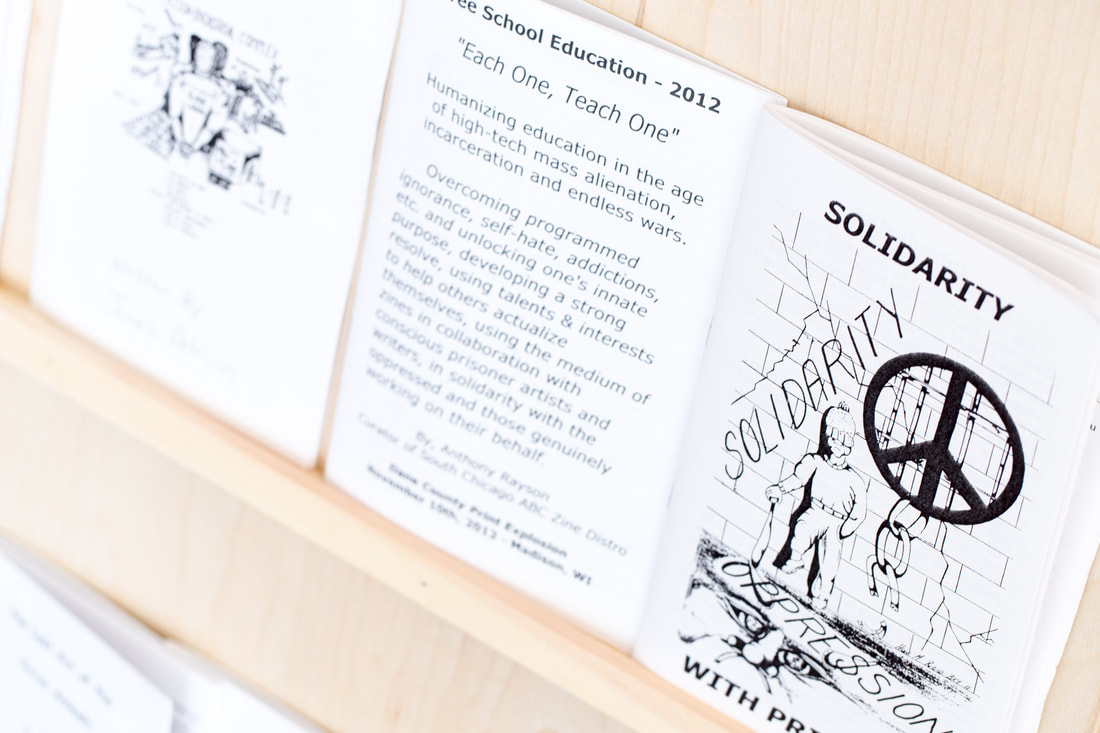 ree School Education - 2012
"Each One, Teach One"
Humanizing education in the age
of high-tech mass alienation,
incarceration and endless wars.
Overcoming programmed
ignorance, self-hate, addictions,
etc. and unlocking one's innate
purpose, developing a strong
resolve, using talents & interests
to help others actualize
themselves, using the medium of
zines in collaboration with
conscious prisoner artists and
writers, in solidarity with the
oppressed and those genuinely
working on their behalf.
By, Anthony Rayson
Curator of South Chicago ABC Zine Distro
Dane County Print Explosion
November 10th, 2012 - Madison, WI
SOLIDARITY
SOLIDARITY
OPPRESSION
WITH PRI